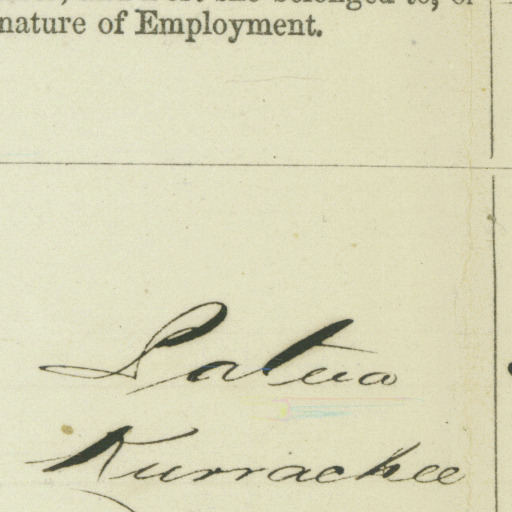 she belonged to, or
nature of Employment.
Latua
Kurrachee